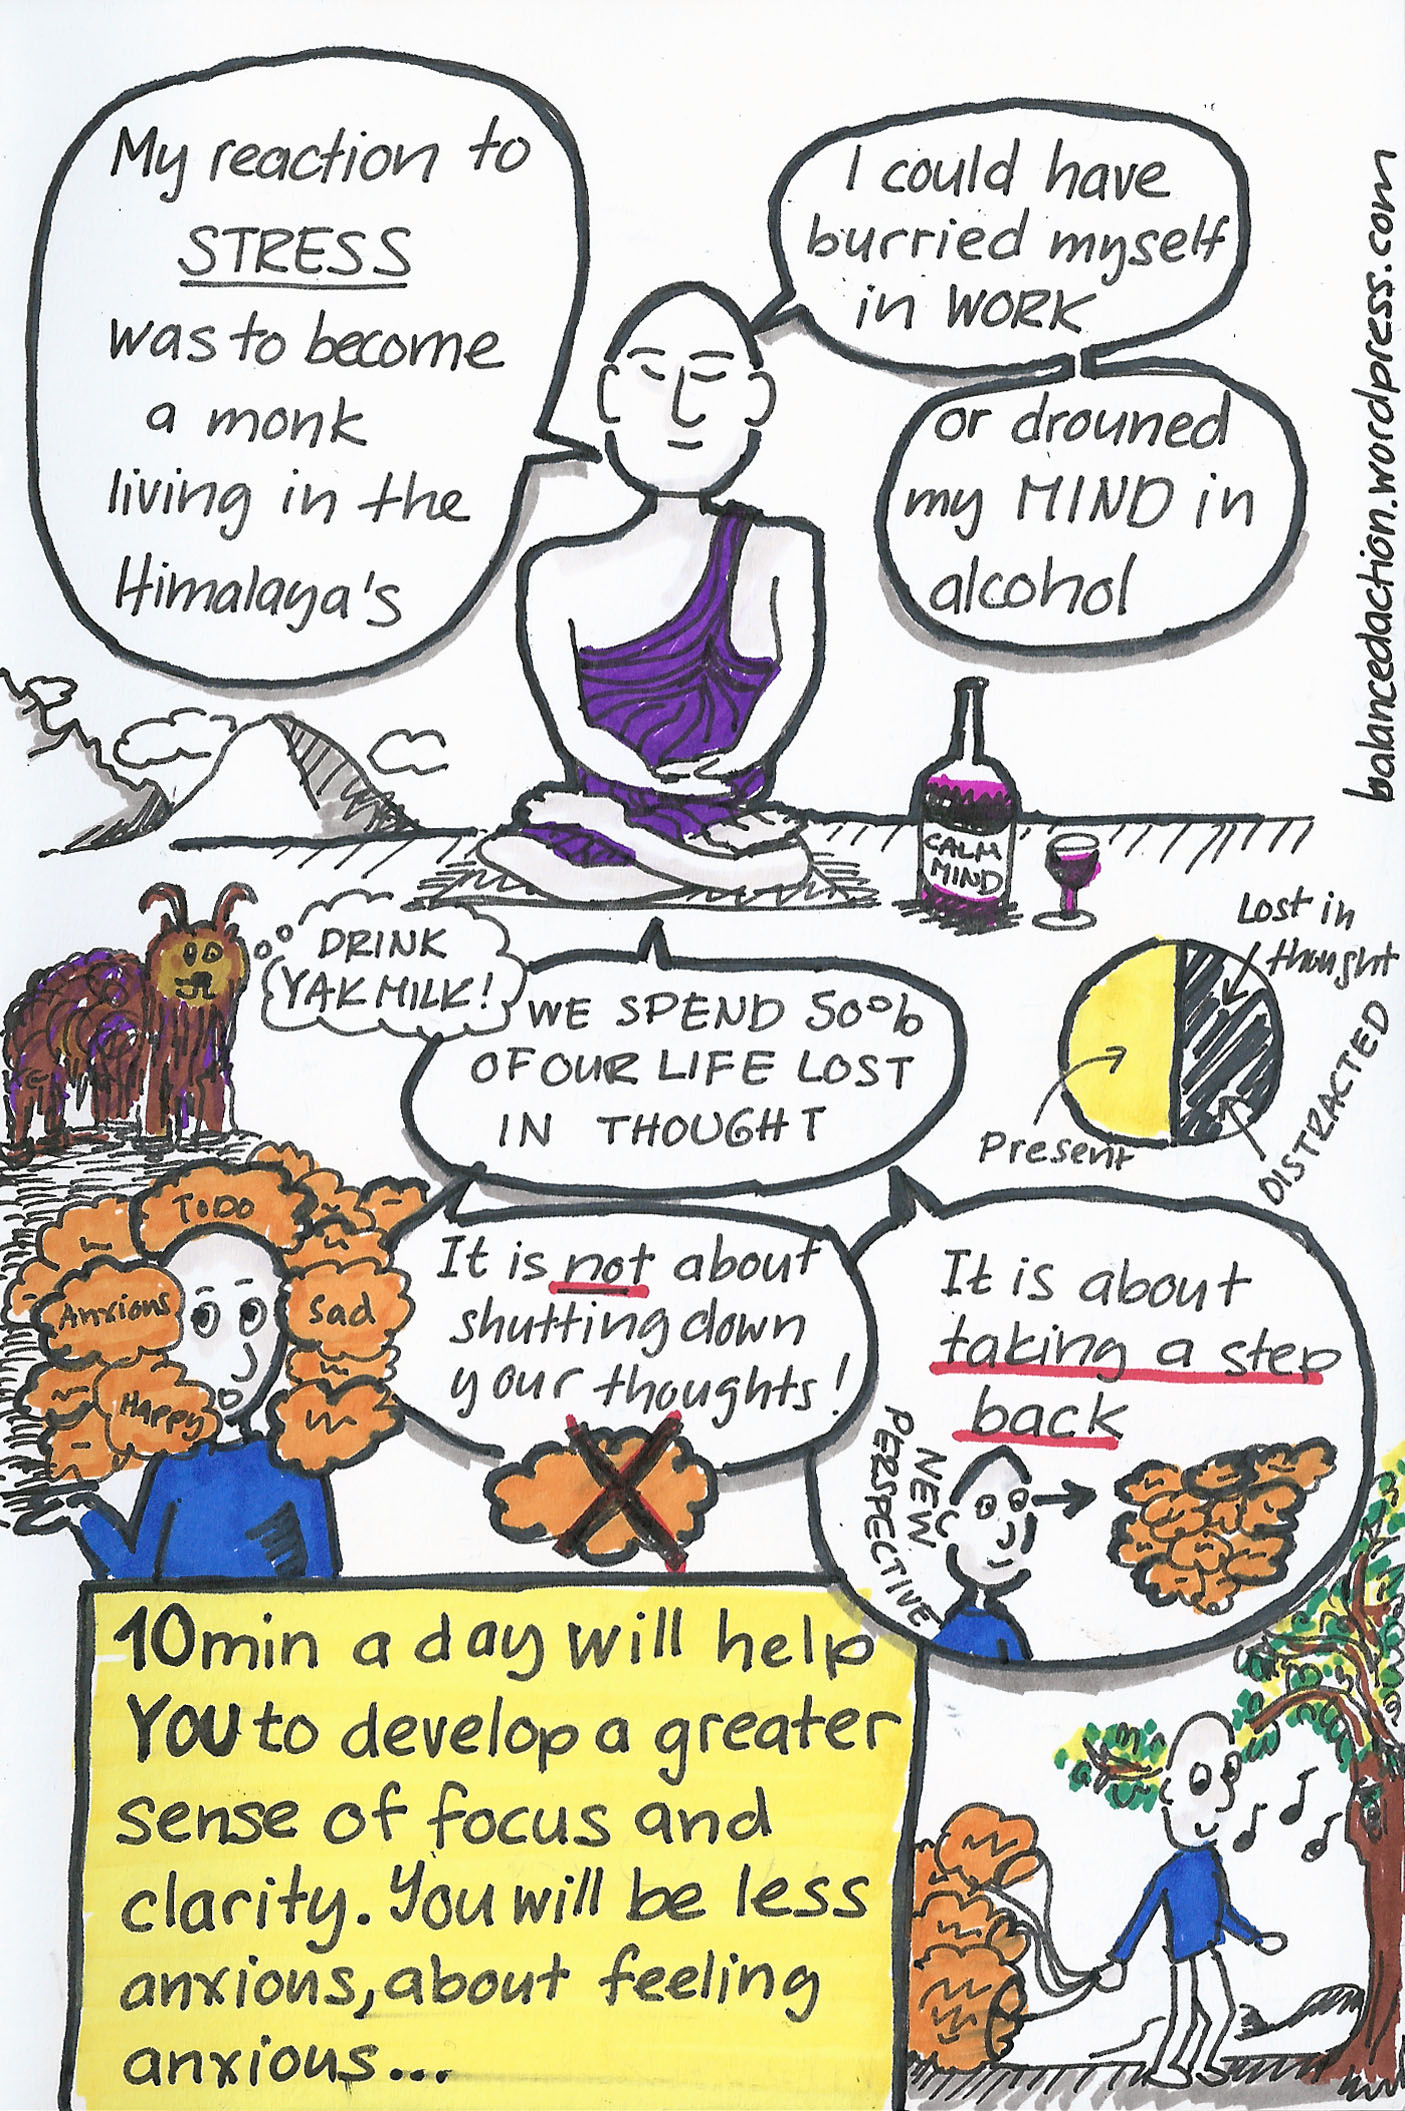 My reaction to
STRESS
was to become
a monk
living in the
Himalaya's
I could have
burried myself
in WORK
or drouned
my MIND in
alcohol
balancedaction.wordpress.com
CALM
MIND
DRINK
YAK MILK!
WE SPEND 50%
OF OUR LIFE LOST
IN THOUGHT
Lost in
thought
Present
DISTRACTED
TODO
Anxious
Sad
Happy
It is not about
shutting down
your thoughts!
It is about
taking a step
back
NEW
PERSPECTIVE
10min a day will help
YOU to develop a greater
sense of focus and
clarity. You will be less
anxious, about feeling
anxious...